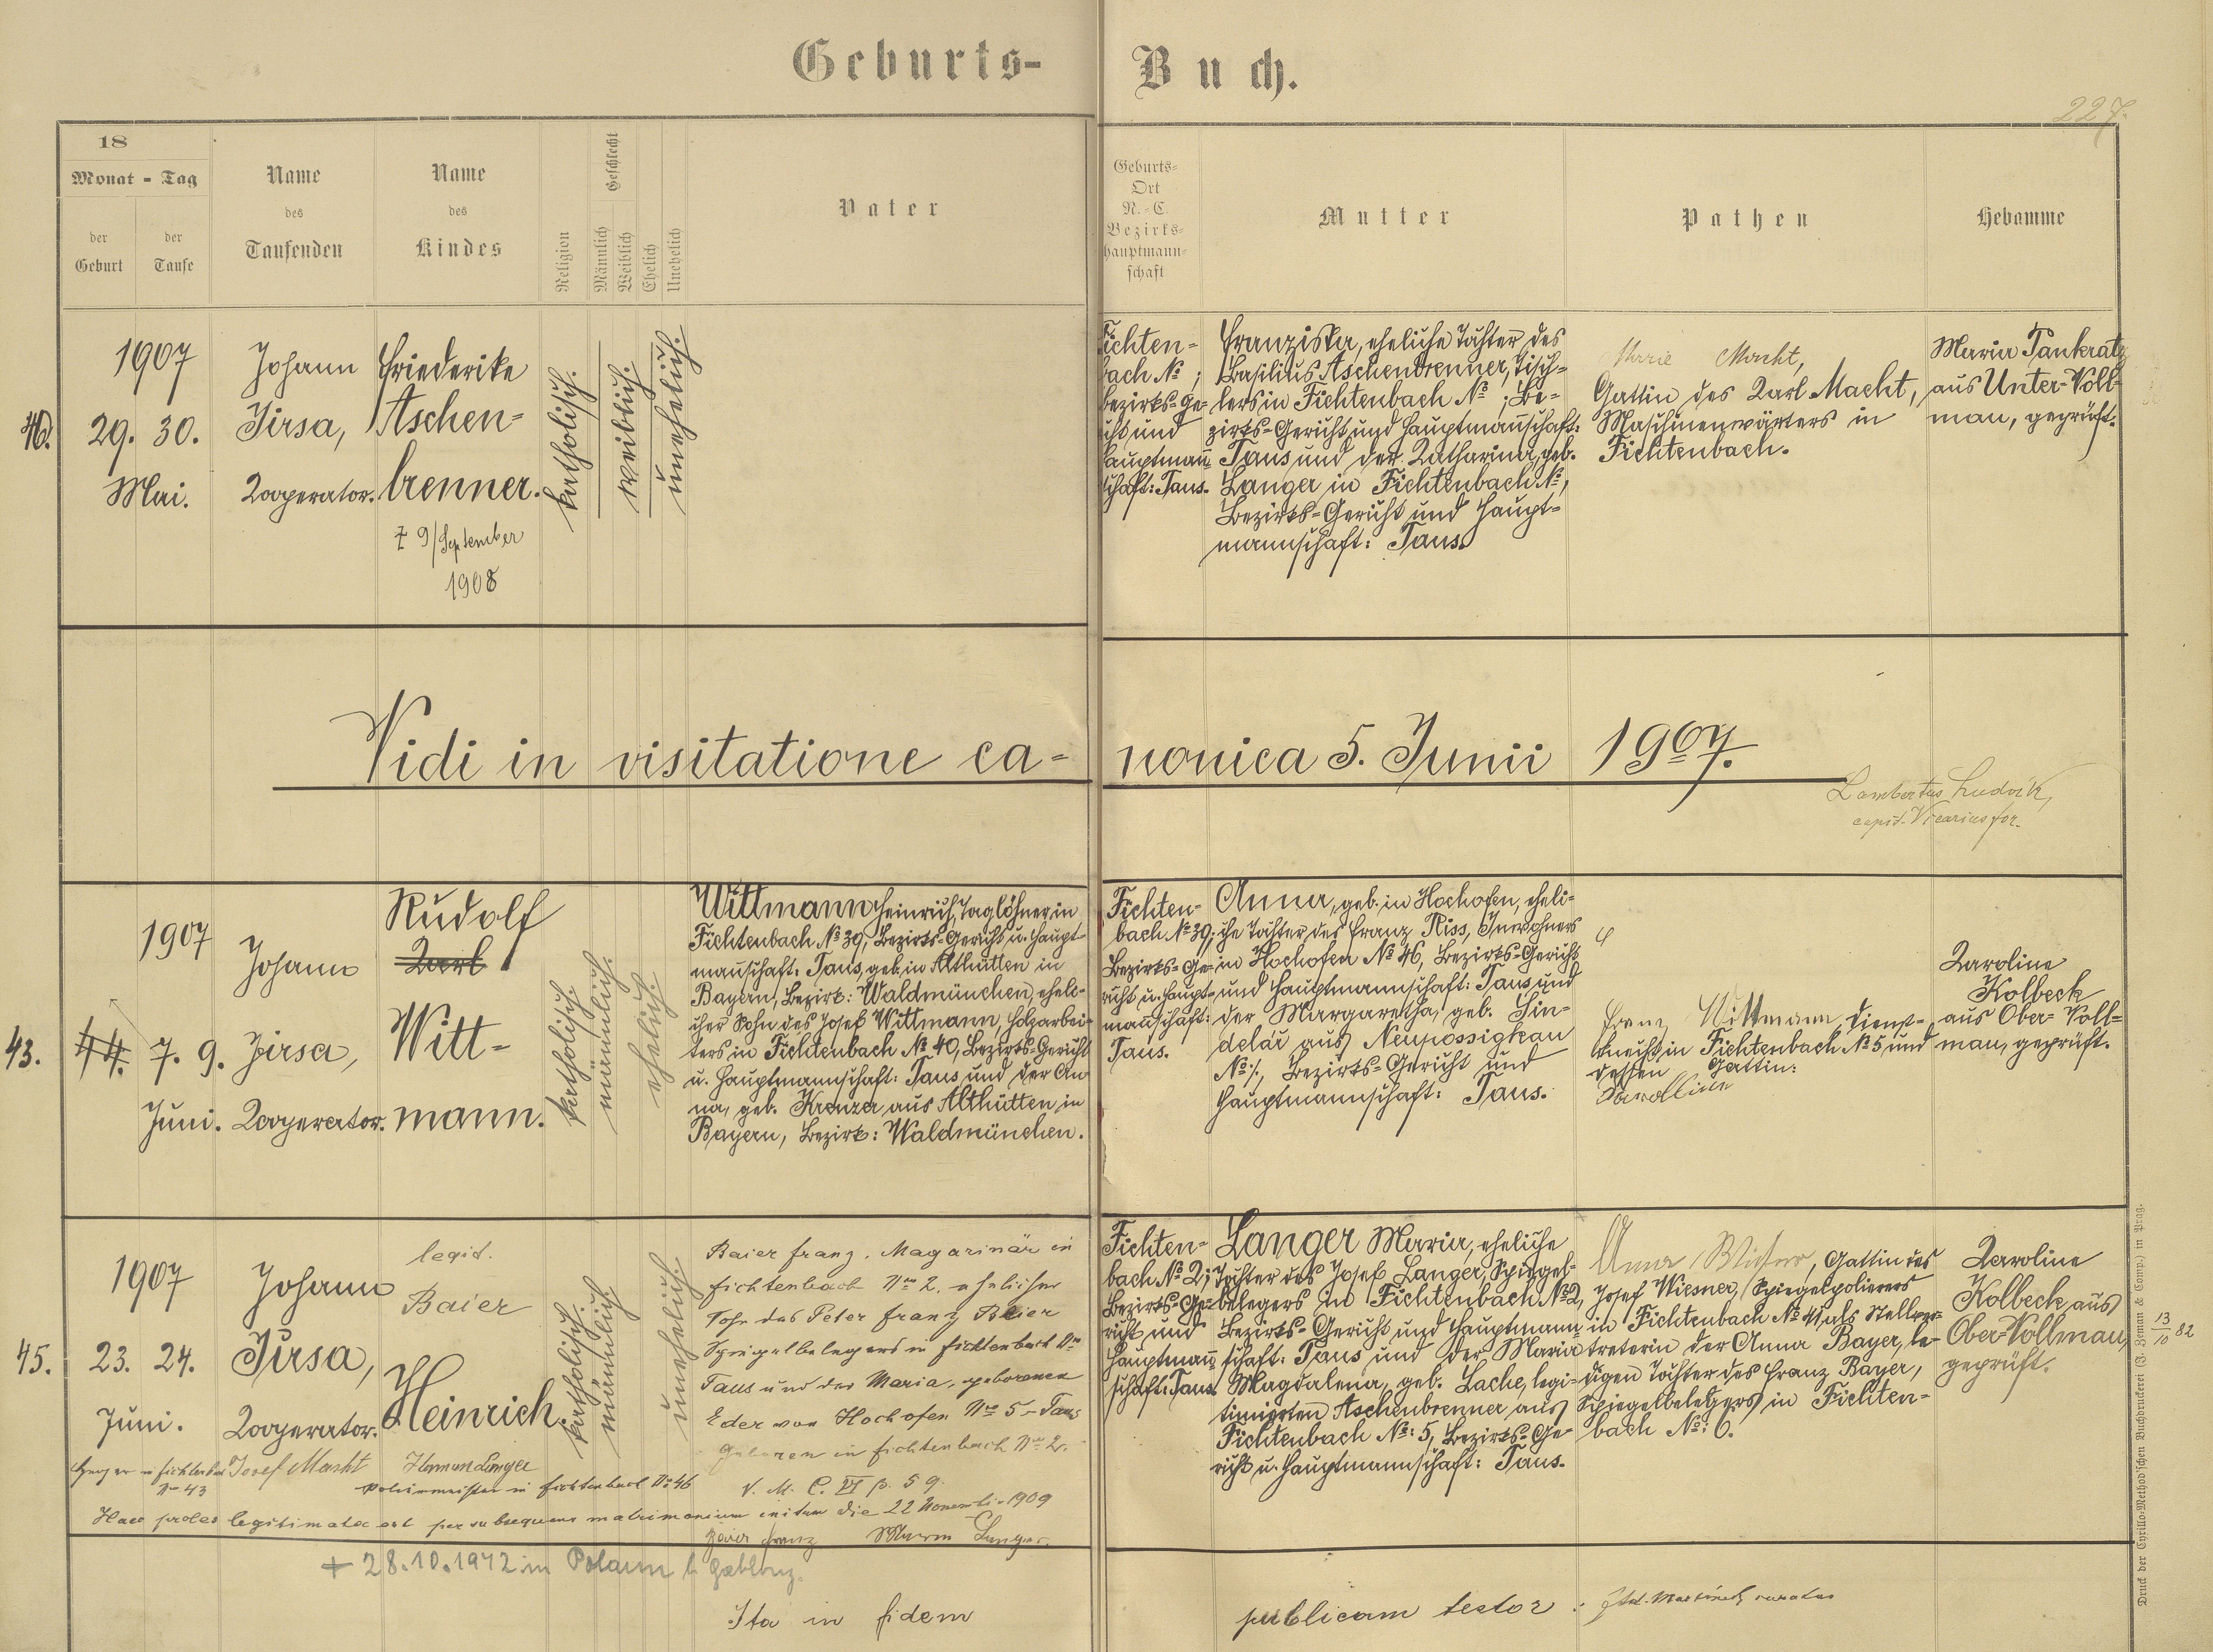 Geburts-Buch.
227.
18
Monat - Tag
der Geburt
der Taufe
Name des Taufenden
Name des Kindes
Religion
Geschlecht
Männlich
Weiblich
Ehelich
Unehelich
Vater
Geburts-
Ort
N.-C.
Bezirks-
hauptmann-
schaft
Mutter
Pathen
Hebamme
1907
29. 30.
Mai.
Johann
Jirsa,
Kooperator.
Friederike
Aschen-
brenner.
9/September
1908
katholisch.
weiblich.
unehelich.
Fichten-
bach No ;
Bezirks-Ge-
richt und
Hauptmann-
schaft: Taus.
Franziska, eheliche Tochter des
Basilius Aschenbrenner, Tisch-
lers in Fichtenbach No ; Be-
zirks-Gericht und Hauptmannschaft:
Taus und der Katharina, geb.
Langer in Fichtenbach No,
Bezirks-Gericht und Haupt-
mannschaft: Taus.
Marie Macht,
Gattin des Karl Macht,
Maschinenwärters in
Fichtenbach.
Maria Pankratz
aus Unter-Voll-
mau, geprüft.
Vidi in visitatione ca-
nonica 5. Junii 1907.
Lambertus Ludvik,
Vicarius for.
43.
44.
1907
7. 9.
Juni.
Johann
Jirsa,
Kooperator.
Rudolf
Karl
Witt-
mann.
katholisch.
männlich.
ehelich.
Wittmann Heinrich, Taglöhner in
Fichtenbach No 39, Bezirks-Gericht u. Haupt-
mannschaft: Taus, geb. in Althütten in
Bayern, Bezirk: Waldmünchen, eheli-
cher Sohn des Josef Wittmann, Holzarbei-
ters in Fichtenbach No 40, Bezirks-Gericht
u. Hauptmannschaft: Taus und der An-
na, geb. Kreuzer aus Althütten in
Bayern, Bezirk: Waldmünchen.
Fichten-
bach No 39;
Bezirks-Ge-
richt u. Haupt-
mannschaft:
Taus.
Anna, geb. in Hochofen, eheli-
che Tochter des Franz Riss, Inwohners
in Hochofen No 46, Bezirks-Gericht
und Hauptmannschaft: Taus und
der Margaretha, geb. Sin-
delář aus Neupossigkau
No /., Bezirks-Gericht und
Hauptmannschaft: Taus.
Franz Wittmann, Dienst-
knecht in Fichtenbach No 5 und
dessen Gattin:
Karolline
Karoline
Kolbeck
aus Ober-Voll-
mau, geprüft.
45.
1907
23. 24.
Juni.
Johann
Jirsa,
Kooperator.
legit.
Baier
Heinrich.
katholisch.
männlich.
unehelich.
Baier Franz, Magazinär in
Fichtenbach No 2, ehelicher
Sohn des Peter Franz Baier
Spiegelbelegers in Fichtenbach No
Taus und der Maria, geborenen
Eder von Hochofen No 5 - Taus
geboren in Fichtenbach No 2.
V. M. C. VI p. 59.
Fichten-
bach No 2;
Bezirks-Ge-
richt und
Hauptmann-
schaft: Taus.
Langer Maria, eheliche
Tochter des Josef Langer, Spiegel-
belegers in Fichtenbach No 2,
Bezirks-Gericht und Hauptmann-
schaft: Taus und der Maria
Magdalena, geb. Lache, legi-
timierten Aschenbrenner aus
Fichtenbach No: 5, Bezirks-Ge-
richt u. Hauptmannschaft: Taus.
Anna Wiesner, Gattin des
Josef Wiesner, Spiegelpolierers
in Fichtenbach No 41, als Stellver-
treterin der Anna Bayer, le-
digen Tochter des Franz Bayer,
Spiegelbelegers in Fichten-
bach No: 6.
Karoline
Kolbeck aus
Ober-Vollmau,
geprüft.
13/10 82
in Fichtenbach Josef Macht
No 43
Herman Langer
Poliermeister in Fichtenbach No 46
Haec proles legitimata est per subsequens matrimonium initum die 22 Novembris 1909
Baier Franz Maria Langer.
+ 28.10.1972 in Polaun b. Gablonz.
Ita in fidem
publicam testor :
Druck der Cyrillo-Method'schen Buchdruckerei (J. Zeman & Comp.) in Prag.